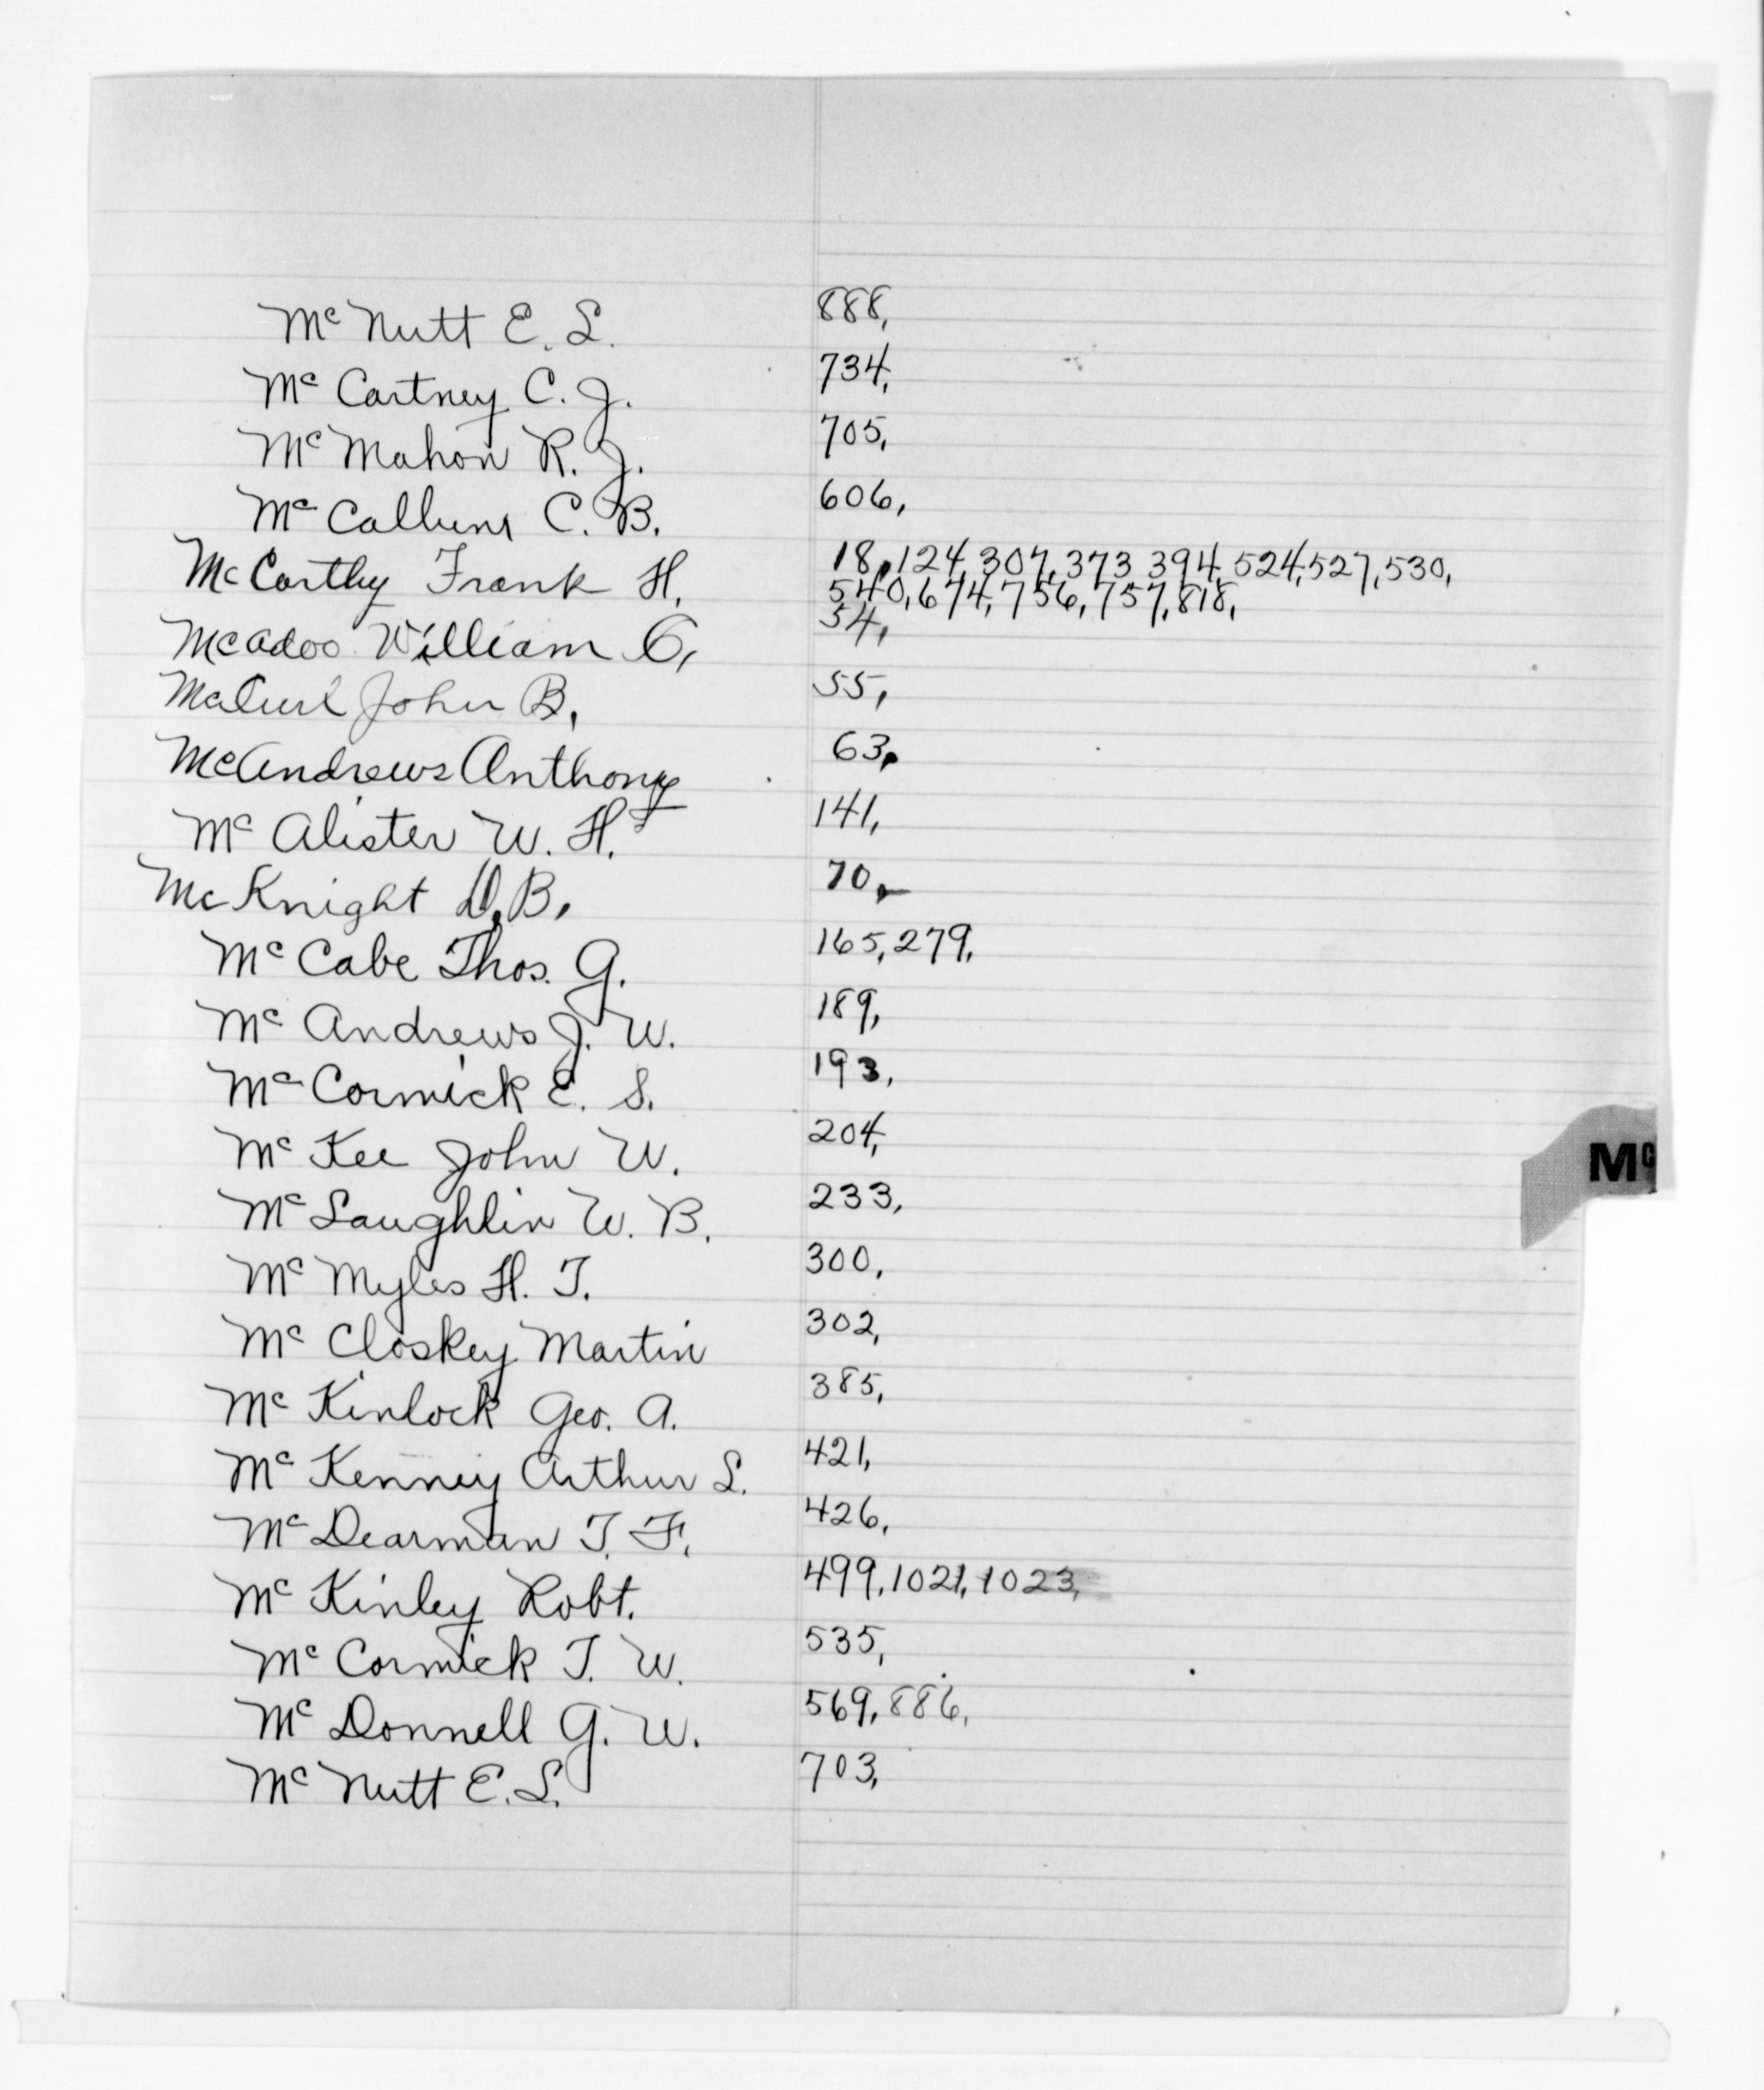 Mc Nutt E. L. 888,
Mc Cartney C. J. 734,
Mc Mahon R. J. 705,
Mc Callum C. B. 606,
McCarthy Frank H. 18, 124, 307, 373 394, 524, 527, 530,
540, 674, 756, 757, 818,
McAdoo William G, 54,
John B, 55,
McAndrews Anthony 63,
Mc Alister W. H. 141,
McKnight D, B, 70,
Mc Cabe Thos. G. 165, 279,
Mc Andrews J. W. 189,
Mc Cormick E. S. 193,
Mc Kee John W. 204,
Mc Laughlin W. B. 233,
Mc Myles H. T. 300,
Mc Closkey Martin 302,
Mc Kinlock Geo. A. 385,
Mc Kenney Arthur L. 421,
Mc Dearman T. F. 426,
Mc Kinley Robt. 499, 1021, 1023,
Mc Cormick T. W. 535,
Mc Donnell G. W. 569, 886,
Mc Nutt E. L. 703,
Mc